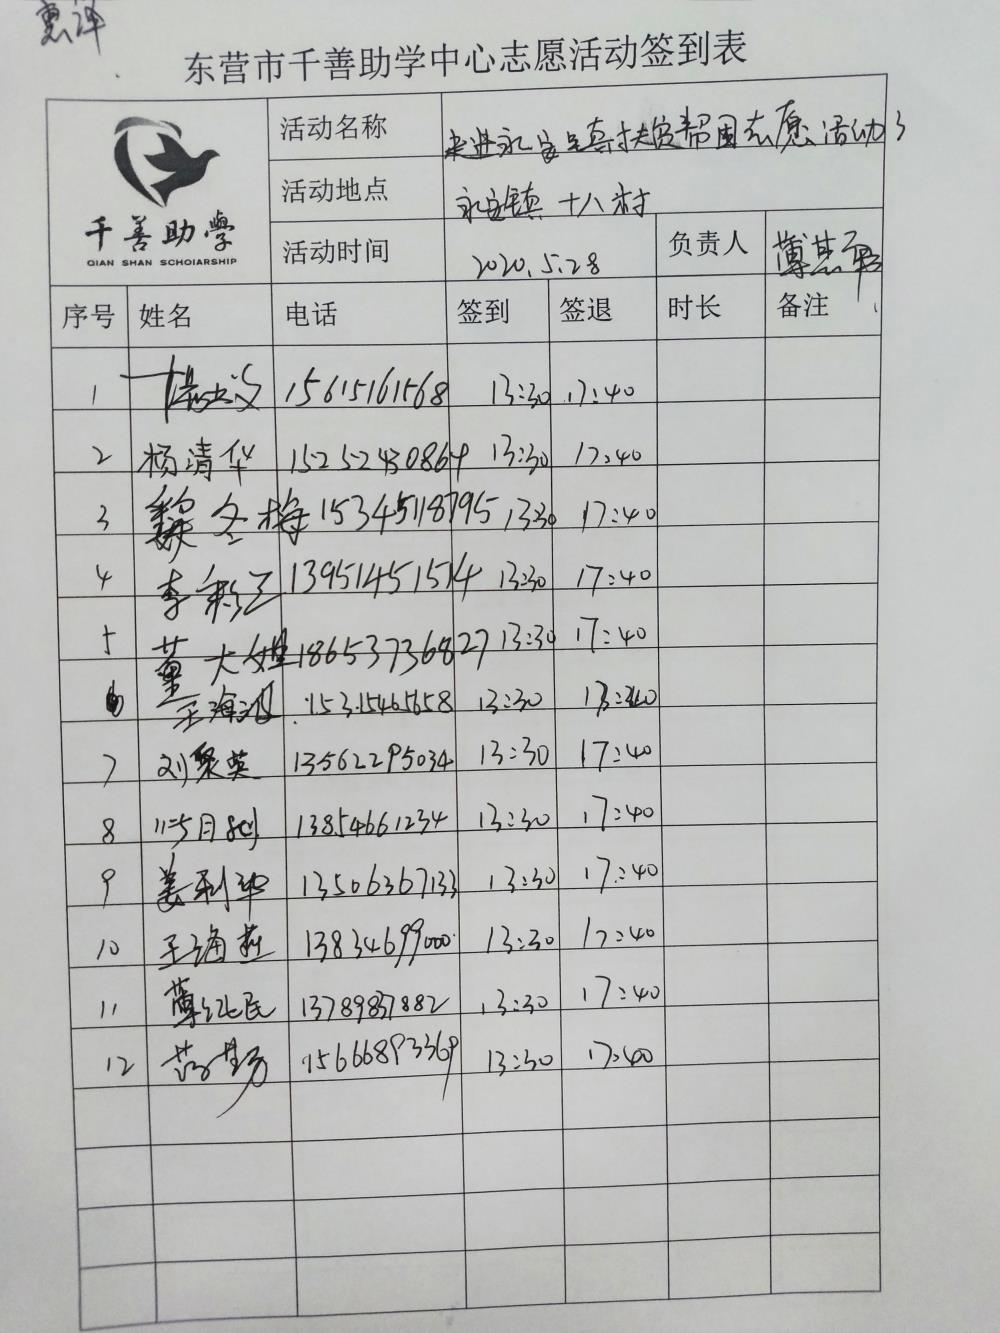 东营市千善助学中心志愿活动签到表
千善助學
QIAN SHAN SCHOIARSHIP
活动名称 走进永安 扶贫帮困志愿活动
活动地点 永安镇 十八村
活动时间 2020.5.28 负责人
序号 姓名 电话 签到 签退 时长 备注
1 15615161568 13:30 17:40
2 杨清华 15252430864 13:30 17:40
3 魏冬梅 15345118795 13:30 17:40
4 李 13951451514 13:30 17:40
5 董大姐 18653736827 13:30 17:40
6 王海波 15315465658 13:30
7 刘聚英 13562295034 13:30 17:40
8 13854661234 13:30 17:40
9 姜利华 13506367133 13:30 17:40
10 王海燕 13834699000 13:30 17:40
11 薄 民 13789837882 13:30 17:40
12 15666893369 13:30 17:40